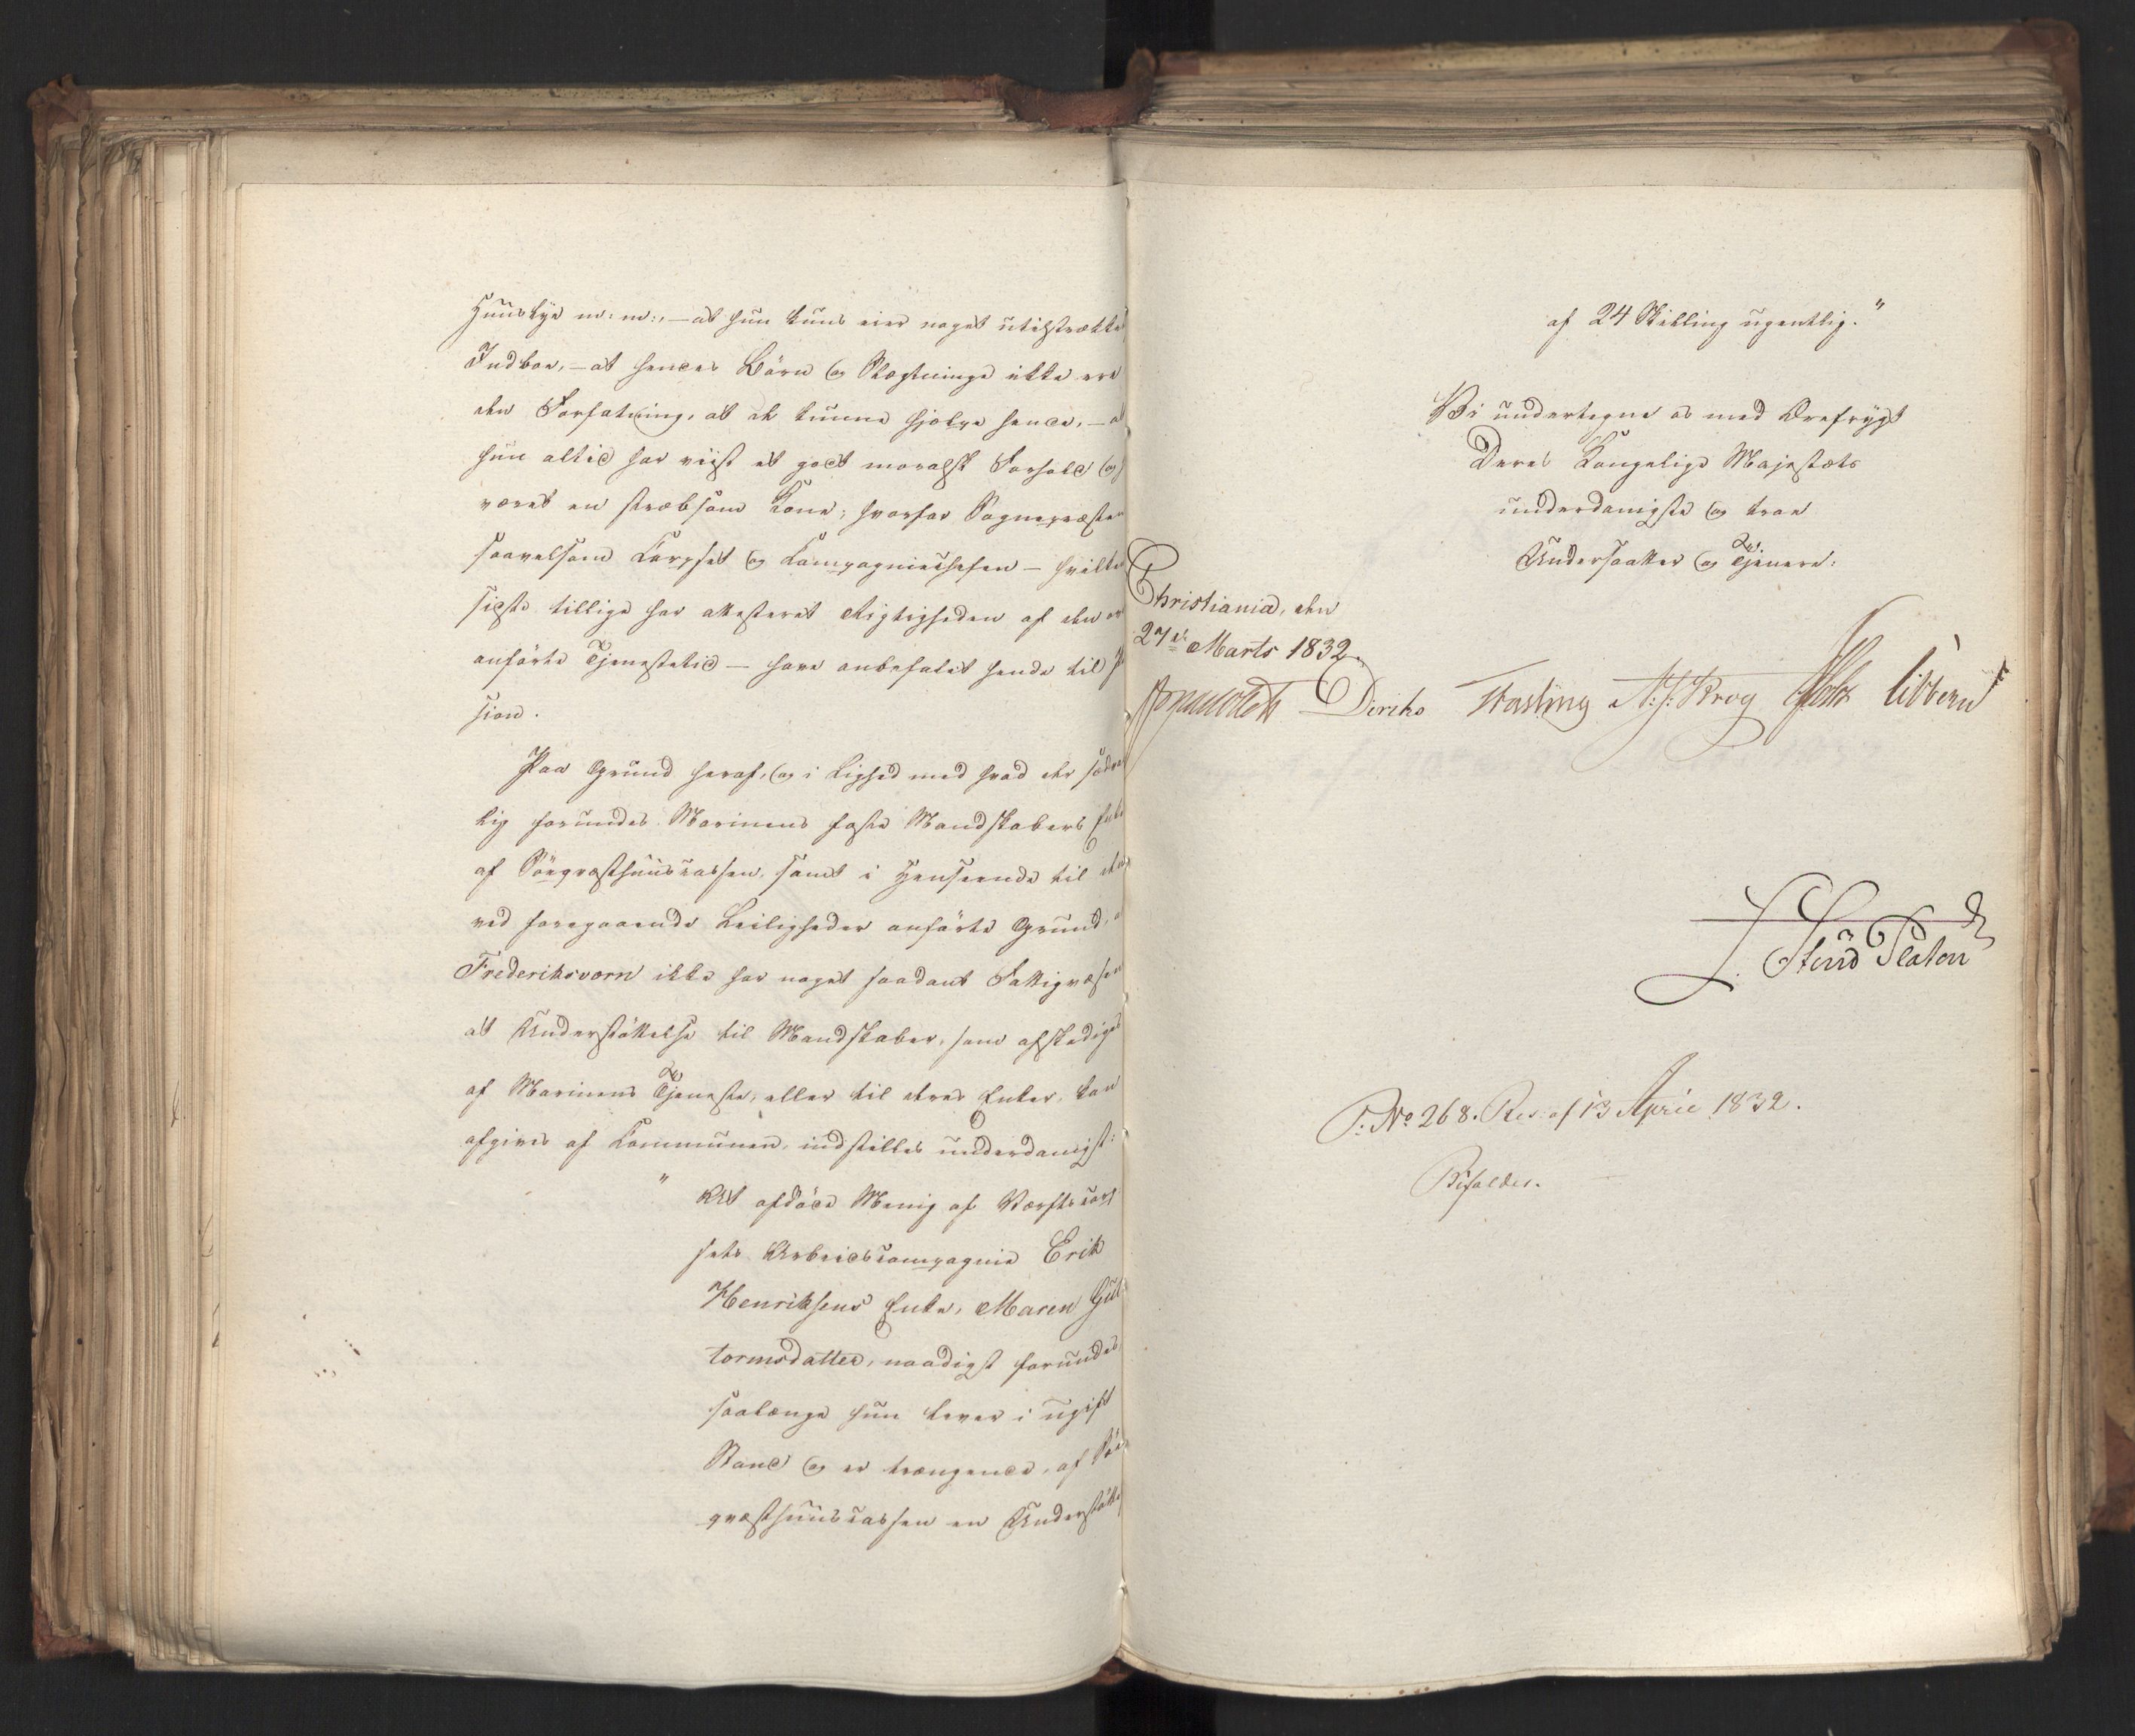 Huuslye m: m:, – at hun kuns eier noget utilstrække
Indboe, – at hendes Börn og Slægtninge ikke ere
den Forfatning, at de kunne hjelpe hende, – at
hun altid har viist et godt moralsk Forhold og
været en stræbsom Kone; hvorfor Sognepræsten
saavelsom Corpset og Compagniechefen – hvilke
sidste tillige har attesteret Rigtigheden af den
anförte Tjenestetid – have anbefalet hende til
sion.
Paa Grund heraf, og i Lighed med hvad der sædvan
lig forundes Marinens faste Mandskabers Enker
af Söeqvæsthuuscassen, samt i Henseende til den
ved foregaaende Leiligheder anförte Grund, at
Frederiksværn ikke har noget saadant Fattigvæsen
at Understöttelse til Mandskaber, som afskediges
af Marinens Tjeneste, eller til deres Enker, kan
afgives af Communen, indstilles underdanigst:
"At afdöde Menig af Værftscorp
sets Arbeidscompagnie Erik
Henriksens Enke, Maren Gut
tormsdatter, naadigst forundes,
saalænge hun lever i ugift
Stand og er trængende, af Söe
qvæsthuuscassen en Understötte
af 24 Skilling ugentlig."
Vi undertegne os med Ærefrygt
Deres Kongelige Majestæts
underdanigste og troe
Undersaatter og Tjenere:
Christiania, den
27de Marts 1832.
Diriks Fasting N. J. Krog Holst Sibbern
J. Send Platou
P: No 268. Res: af 13 April 1832.
Bifaldes.